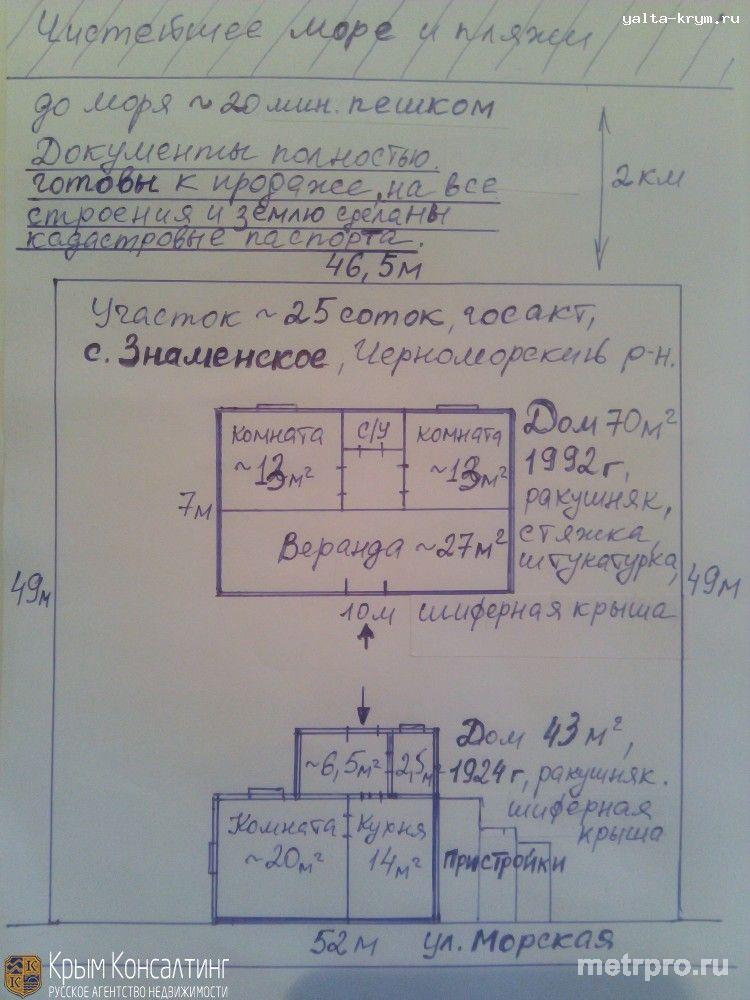 yalta-krym.ru
Чистейшее море и пляжи
до моря ~ 20 мин. пешком
Документы полностью
готовы к продаже, на все
строения и землю сделаны
кадастровые паспорта.
2 км
46,5 м
Участок ~ 25 соток, госакт,
с. Знаменское, Черноморский р-н.
комната
~13 м²
с/у
комната
~13 м²
Дом 70 м²
1992 г,
ракушняк,
стяжка,
штукатурка,
шиферная крыша
7 м
Веранда ~27 м²
10 м
49 м
49 м
~6,5 м²
2,5 м²
Дом 43 м²,
1924 г, ракушняк.
шиферная
крыша
Комната
~20 м²
Кухня
14 м²
Пристройки
52 м ул. Морская
Крым Консалтинг
РУССКОЕ АГЕНТСТВО НЕДВИЖИМОСТИ
metrpro.ru